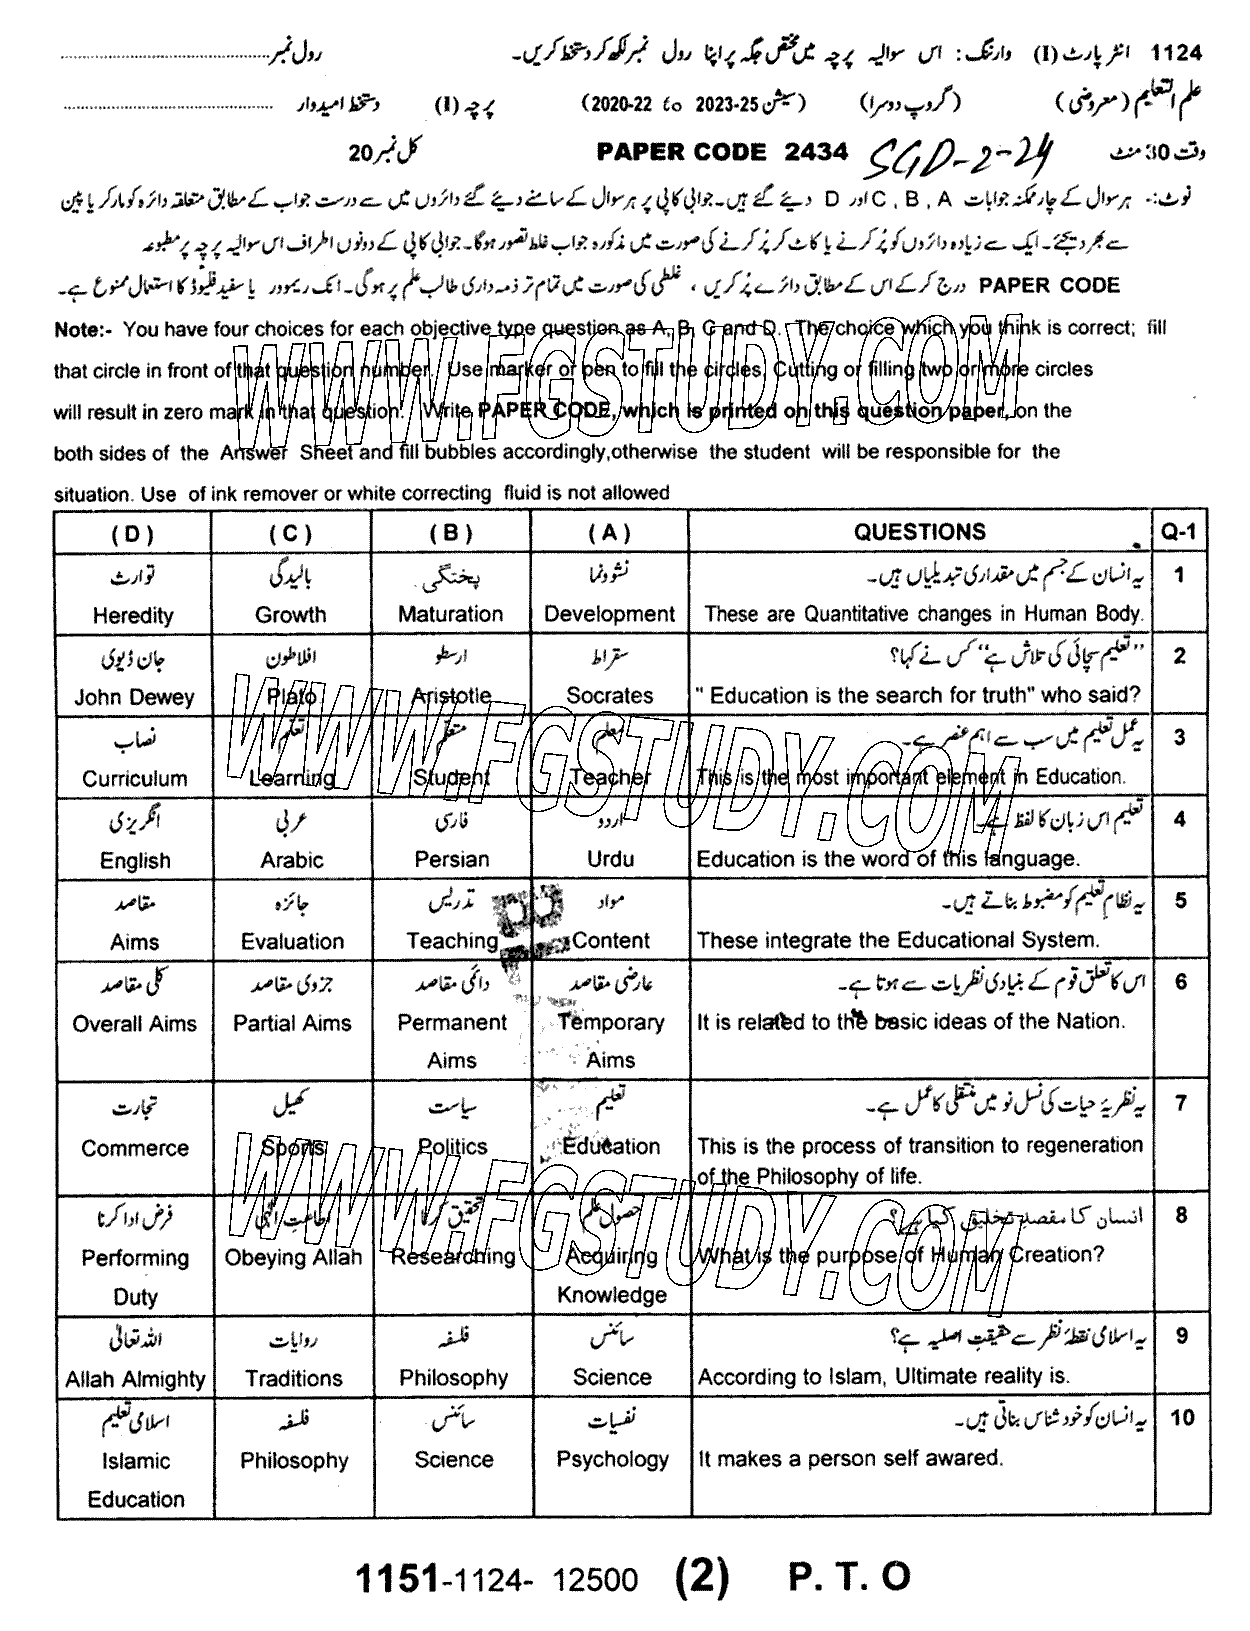 1124 انٹر پارٹ (I) وارننگ: اس سوالیہ پرچہ میں مختص جگہ پر اپنا رول نمبر لکھ کر دستخط کریں۔ رول نمبر
علم التعلیم (معروضی) (گروپ دوسرا) (سیشن 2023-25 to 2020-22) پرچہ (I) دستخط امیدوار
وقت 30 منٹ SGD-2-24 PAPER CODE 2434 کل نمبر 20
نوٹ:- ہر سوال کے چار ممکنہ جوابات A , B , C اور D دیئے گئے ہیں۔ جوابی کاپی پر ہر سوال کے سامنے دیئے گئے دائروں میں سے درست جواب کے مطابق متعلقہ دائرہ کو مارکر یا پین
سے بھر دیجئے۔ ایک سے زیادہ دائروں کو پُر کرنے یا کاٹ کر پُر کرنے کی صورت میں مذکورہ جواب غلط تصور ہوگا۔ جوابی کاپی کے دونوں اطراف اس سوالیہ پرچہ پر مطبوعہ
PAPER CODE درج کر کے اس کے مطابق دائرے پُر کریں ، غلطی کی صورت میں تمام تر ذمہ داری طالب علم پر ہوگی۔ انک ریمور یا سفید فلیوڈ کا استعمال ممنوع ہے۔
Note:- You have four choices for each objective type question as A, B, C and D. The choice which you think is correct; fill
that circle in front of that question number. Use marker or pen to fill the circles. Cutting or filling two or more circles
will result in zero mark in that question. Write PAPER CODE, which is printed on this question paper, on the
both sides of the Answer Sheet and fill bubbles accordingly,otherwise the student will be responsible for the
situation. Use of ink remover or white correcting fluid is not allowed
(D) (C) (B) (A) QUESTIONS Q-1
توارث بالیدگی پختگی نشوونما یہ انسان کے جسم میں مقداری تبدیلیاں ہیں۔ 1
Heredity Growth Maturation Development These are Quantitative changes in Human Body.
جان ڈیوی افلاطون ارسطو سقراط ''تعلیم سچائی کی تلاش ہے'' کس نے کہا؟ 2
John Dewey Plato Aristotle Socrates " Education is the search for truth" who said?
نصاب تعلّم متعلّم معلم یہ عمل تعلیم میں سب سے اہم عنصر ہے۔ 3
Curriculum Learning Student Teacher This is the most important element in Education.
انگریزی عربی فارسی اردو تعلیم اس زبان کا لفظ ہے۔ 4
English Arabic Persian Urdu Education is the word of this language.
مقاصد جائزہ تدریس مواد یہ نظامِ تعلیم کو مضبوط بناتے ہیں۔ 5
Aims Evaluation Teaching Content These integrate the Educational System.
کلی مقاصد جزوی مقاصد دائمی مقاصد عارضی مقاصد اس کا تعلق قوم کے بنیادی نظریات سے ہوتا ہے۔ 6
Overall Aims Partial Aims Permanent Temporary It is related to the basic ideas of the Nation.
Aims Aims
تجارت کھیل سیاست تعلیم یہ نظریۂ حیات کی نسل نو میں منتقلی کا عمل ہے۔ 7
Commerce Sports Politics Education This is the process of transition to regeneration
of the Philosophy of life.
فرض ادا کرنا اطاعتِ الٰہی تحقیق کرنا حصول علم انسان کا مقصد تخلیق کیا ہے؟ 8
Performing Obeying Allah Researching Acquiring What is the purpose of Human Creation?
Duty Knowledge
اللہ تعالیٰ روایات فلسفہ سائنس یہ اسلامی نقطۂ نظر سے حقیقتِ اصلیہ ہے؟ 9
Allah Almighty Traditions Philosophy Science According to Islam, Ultimate reality is.
اسلامی تعلیم فلسفہ سائنس نفسیات یہ انسان کو خود شناس بناتی ہیں۔ 10
Islamic Philosophy Science Psychology It makes a person self awared.
Education
1151-1124- 12500 (2) P. T. O
WWW.FGSTUDY.COM
WWW.FGSTUDY.COM
WWW.FGSTUDY.COM